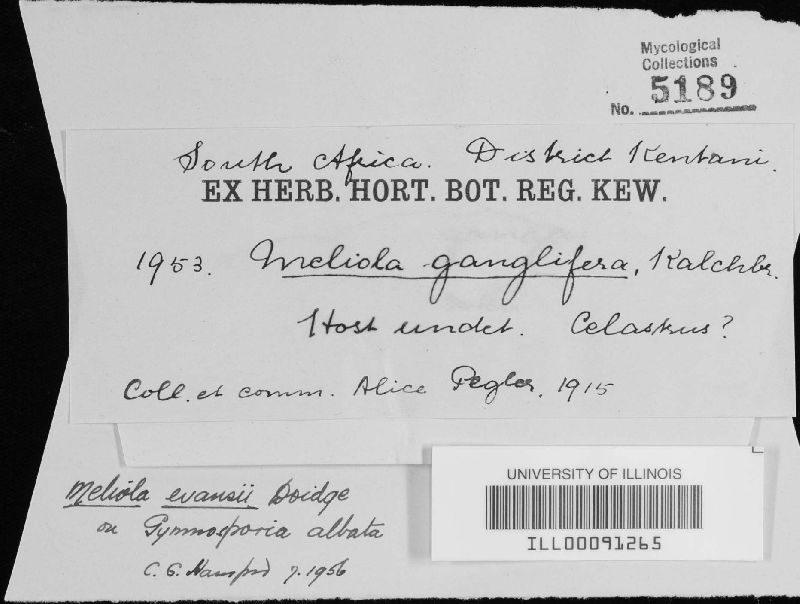 Mycological
Collections
No. 5189
South Africa. District Kentani.
EX HERB. HORT. BOT. REG. KEW.
1953. Meliola ganglifera, Kalchbr.
Host undet. Celastrus?
Coll. et comm. Alice Pegler, 1915
UNIVERSITY OF ILLINOIS
ILL00091265
Meliola evansii Doidge
on Gymnosporia albata
C. G. Hansford 7.1956